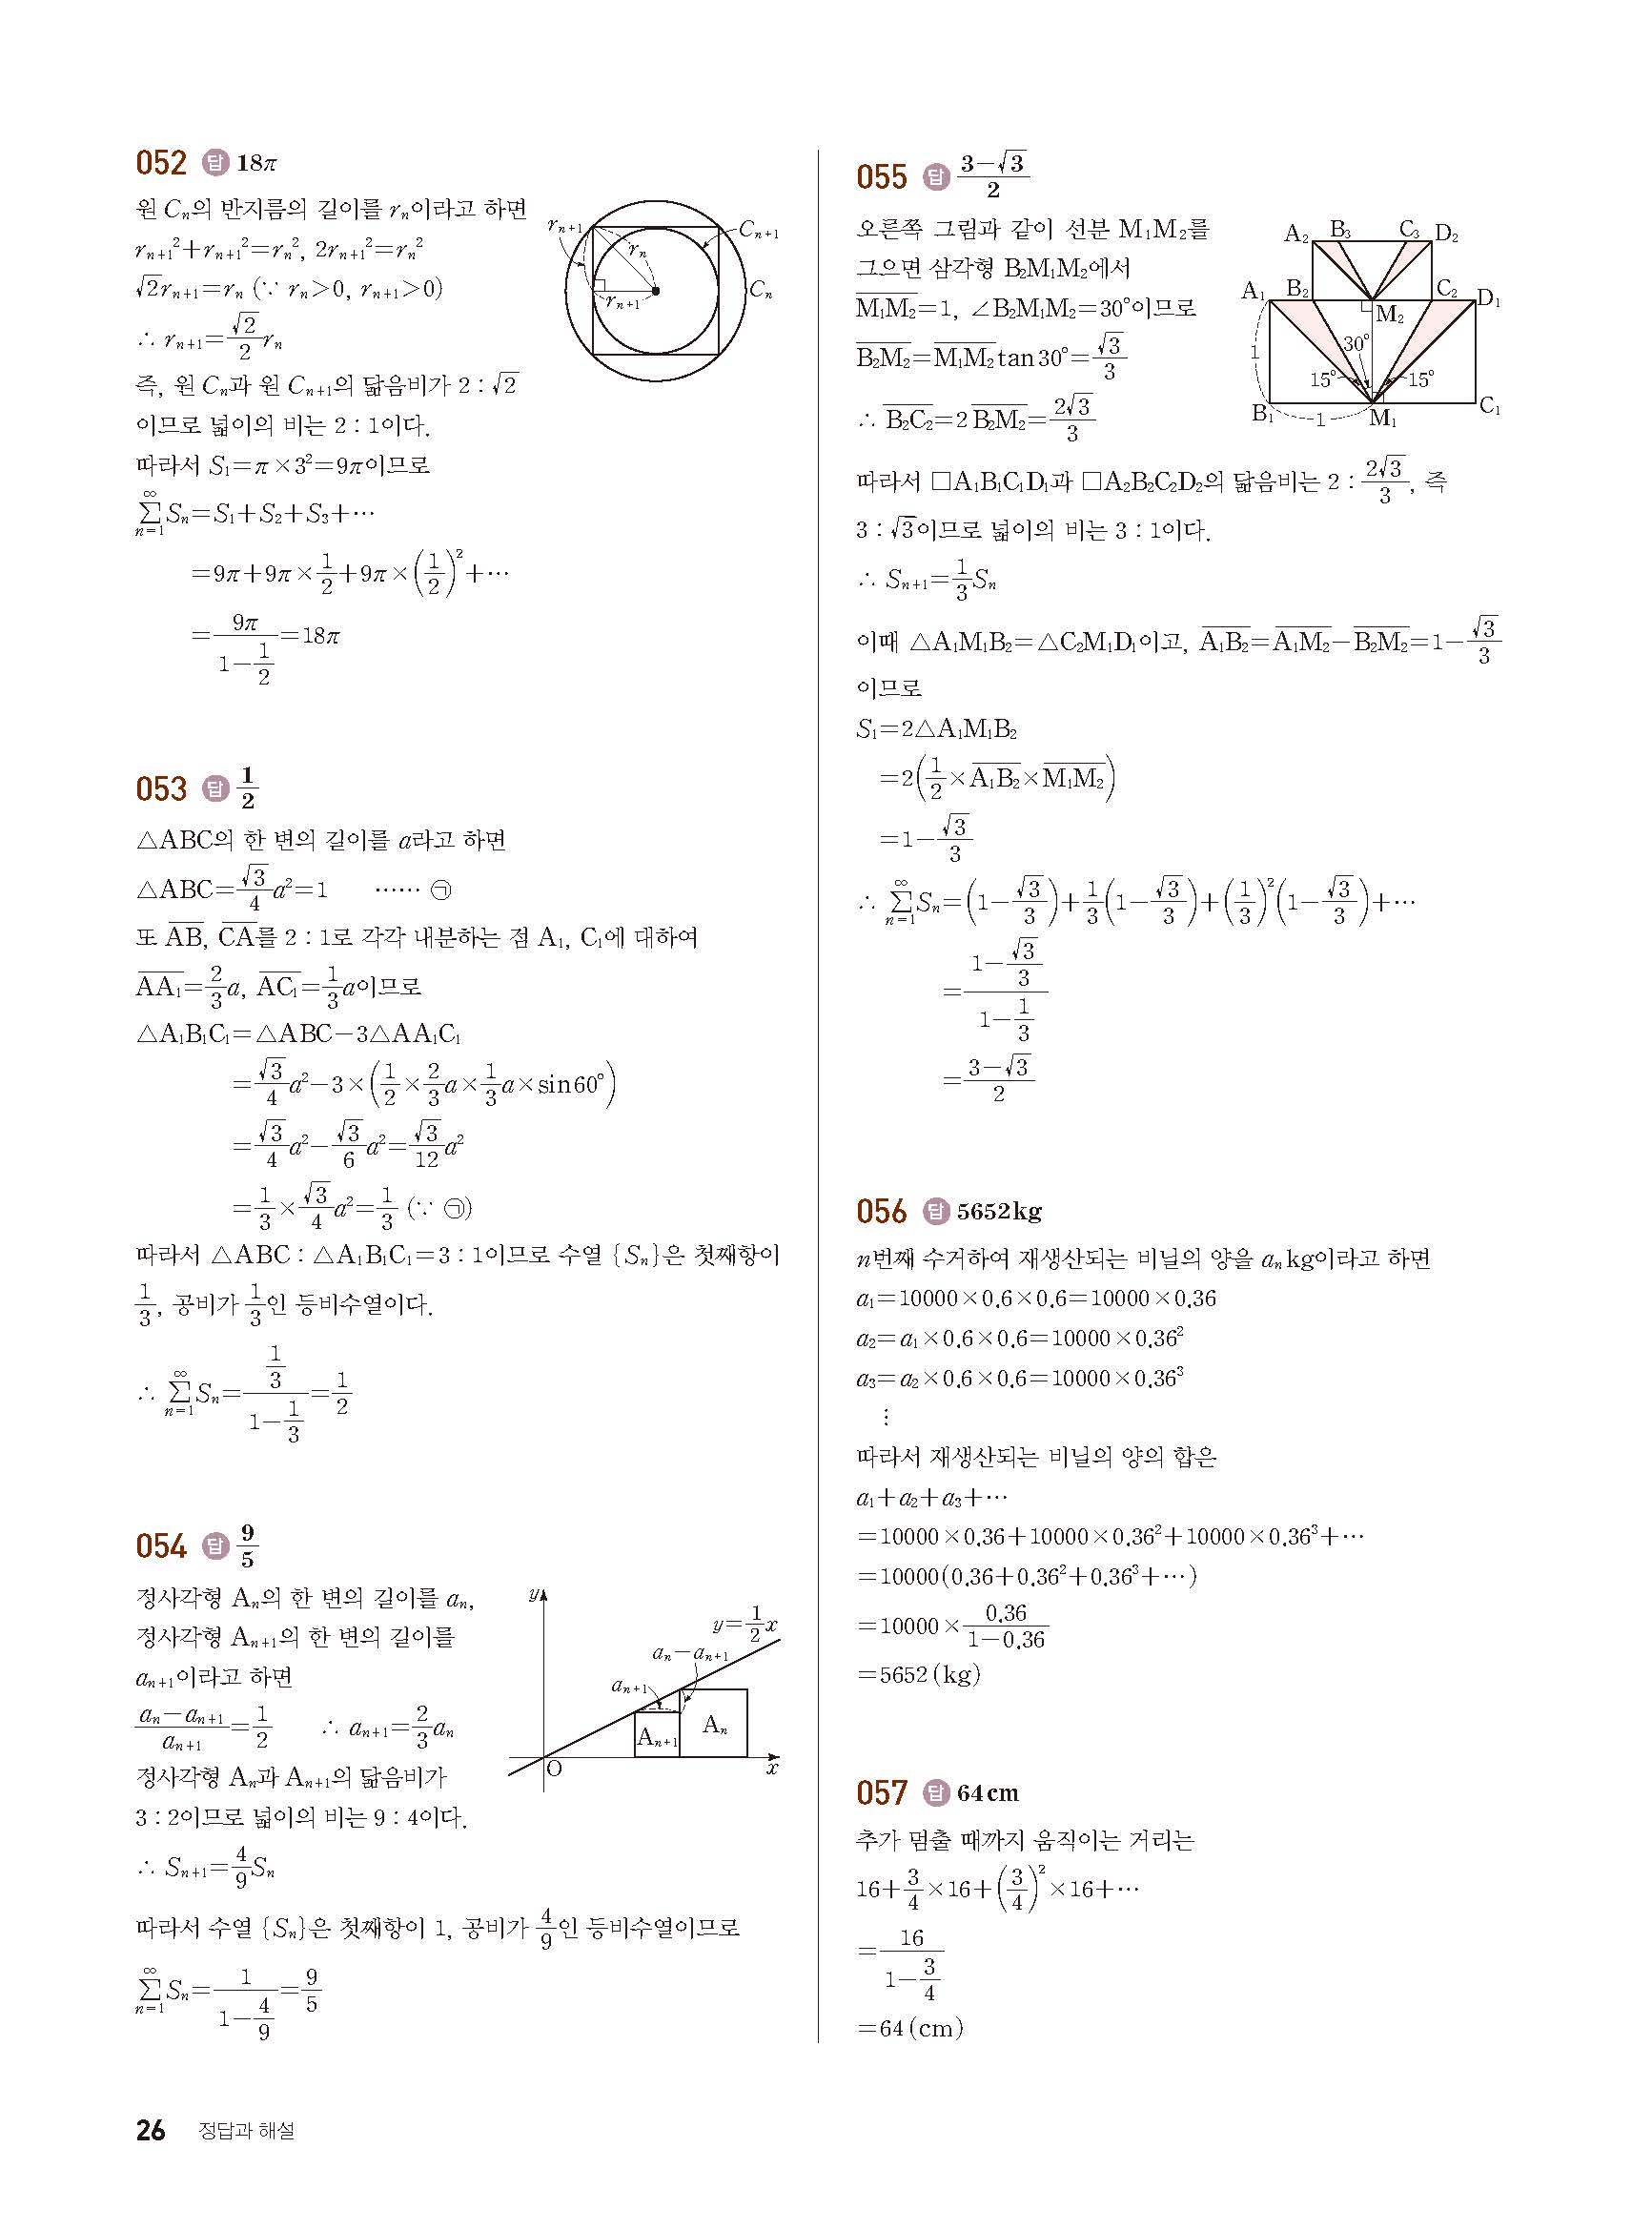 052 답 18π
원 Cₙ의 반지름의 길이를 rₙ이라고 하면
rₙ₊₁²+rₙ₊₁²=rₙ², 2rₙ₊₁²=rₙ²
√2rₙ₊₁=rₙ (∵ rₙ>0, rₙ₊₁>0)
∴ rₙ₊₁=√2/2 rₙ
즉, 원 Cₙ과 원 Cₙ₊₁의 닮음비가 2 : √2
이므로 넓이의 비는 2 : 1이다.
따라서 S₁=π×3²=9π이므로
∞∑n=1 Sₙ=S₁+S₂+S₃+⋯
=9π+9π×1/2+9π×(1/2)²+⋯
=9π/(1−1/2)=18π
rₙ₊₁
rₙ
rₙ₊₁
Cₙ₊₁
Cₙ
053 답 1/2
△ABC의 한 변의 길이를 a라고 하면
△ABC=√3/4 a²=1 ⋯⋯ ㉠
또 A̅B̅, C̅A̅를 2 : 1로 각각 내분하는 점 A₁, C₁에 대하여
A̅A̅₁=2/3 a, A̅C̅₁=1/3 a이므로
△A₁B₁C₁=△ABC−3△AA₁C₁
=√3/4 a²−3×(1/2×2/3 a×1/3 a×sin60°)
=√3/4 a²−√3/6 a²=√3/12 a²
=1/3×√3/4 a²=1/3 (∵ ㉠)
따라서 △ABC : △A₁B₁C₁=3 : 1이므로 수열 {Sₙ}은 첫째항이
1/3, 공비가 1/3인 등비수열이다.
∴ ∞∑n=1 Sₙ=(1/3)/(1−1/3)=1/2
054 답 9/5
정사각형 Aₙ의 한 변의 길이를 aₙ,
정사각형 Aₙ₊₁의 한 변의 길이를
aₙ₊₁이라고 하면
(aₙ−aₙ₊₁)/aₙ₊₁=1/2 ∴ aₙ₊₁=2/3 aₙ
정사각형 Aₙ과 Aₙ₊₁의 닮음비가
3 : 2이므로 넓이의 비는 9 : 4이다.
∴ Sₙ₊₁=4/9 Sₙ
따라서 수열 {Sₙ}은 첫째항이 1, 공비가 4/9인 등비수열이므로
∞∑n=1 Sₙ=1/(1−4/9)=9/5
y
y=1/2 x
aₙ−aₙ₊₁
aₙ₊₁
Aₙ₊₁
Aₙ
O
x
055 답 (3−√3)/2
오른쪽 그림과 같이 선분 M₁M₂를
그으면 삼각형 B₂M₁M₂에서
M̅₁M̅₂=1, ∠B₂M₁M₂=30°이므로
B̅₂M̅₂=M̅₁M̅₂tan30°=√3/3
∴ B̅₂C̅₂=2B̅₂M̅₂=2√3/3
A₂ B₃ C₃ D₂
A₁ B₂ C₂ D₁
M₂
1
30°
15° 15°
B₁ 1 M₁ C₁
따라서 □A₁B₁C₁D₁과 □A₂B₂C₂D₂의 닮음비는 2 : 2√3/3, 즉
3 : √3이므로 넓이의 비는 3 : 1이다.
∴ Sₙ₊₁=1/3 Sₙ
이때 △A₁M₁B₂=△C₂M₁D₁이고, A̅₁B̅₂=A̅₁M̅₂−B̅₂M̅₂=1−√3/3
이므로
S₁=2△A₁M₁B₂
=2(1/2×A̅₁B̅₂×M̅₁M̅₂)
=1−√3/3
∴ ∞∑n=1 Sₙ=(1−√3/3)+1/3(1−√3/3)+(1/3)²(1−√3/3)+⋯
=(1−√3/3)/(1−1/3)
=(3−√3)/2
056 답 5652kg
n번째 수거하여 재생산되는 비닐의 양을 aₙ kg이라고 하면
a₁=10000×0.6×0.6=10000×0.36
a₂=a₁×0.6×0.6=10000×0.36²
a₃=a₂×0.6×0.6=10000×0.36³
⋮
따라서 재생산되는 비닐의 양의 합은
a₁+a₂+a₃+⋯
=10000×0.36+10000×0.36²+10000×0.36³+⋯
=10000(0.36+0.36²+0.36³+⋯)
=10000×0.36/(1−0.36)
=5652(kg)
057 답 64cm
추가 멈출 때까지 움직이는 거리는
16+3/4×16+(3/4)²×16+⋯
=16/(1−3/4)
=64(cm)
26 정답과 해설